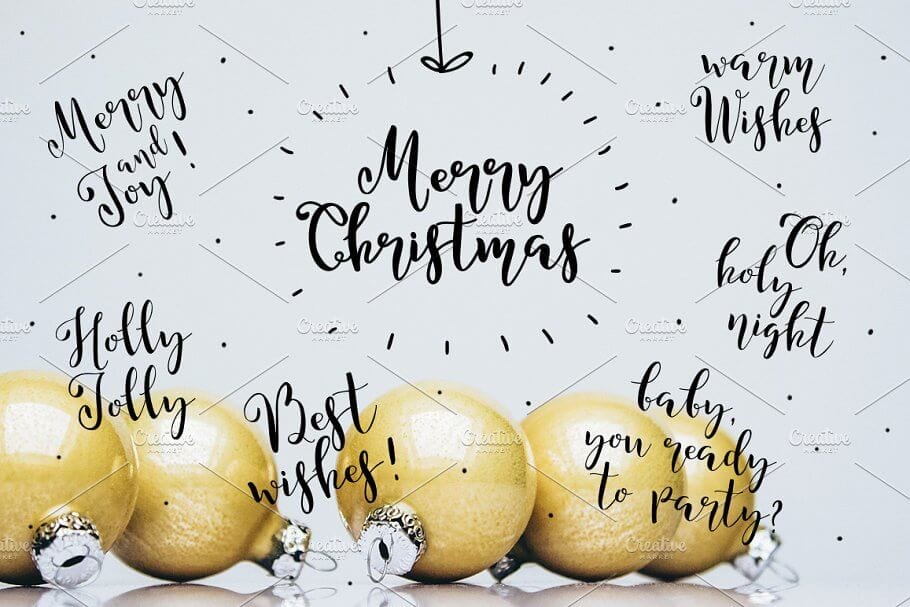 Merry
and
Joy!
Merry
Christmas
warm
Wishes
Oh,
holy
night
Holly
Jolly
Best
wishes!
baby,
you ready
to party?
Creative
MARKET